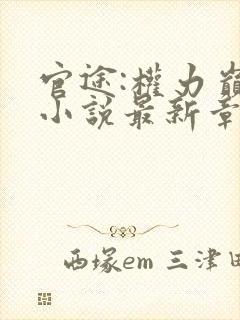 官途:權力巔
小說最新章
西塚em 三津田